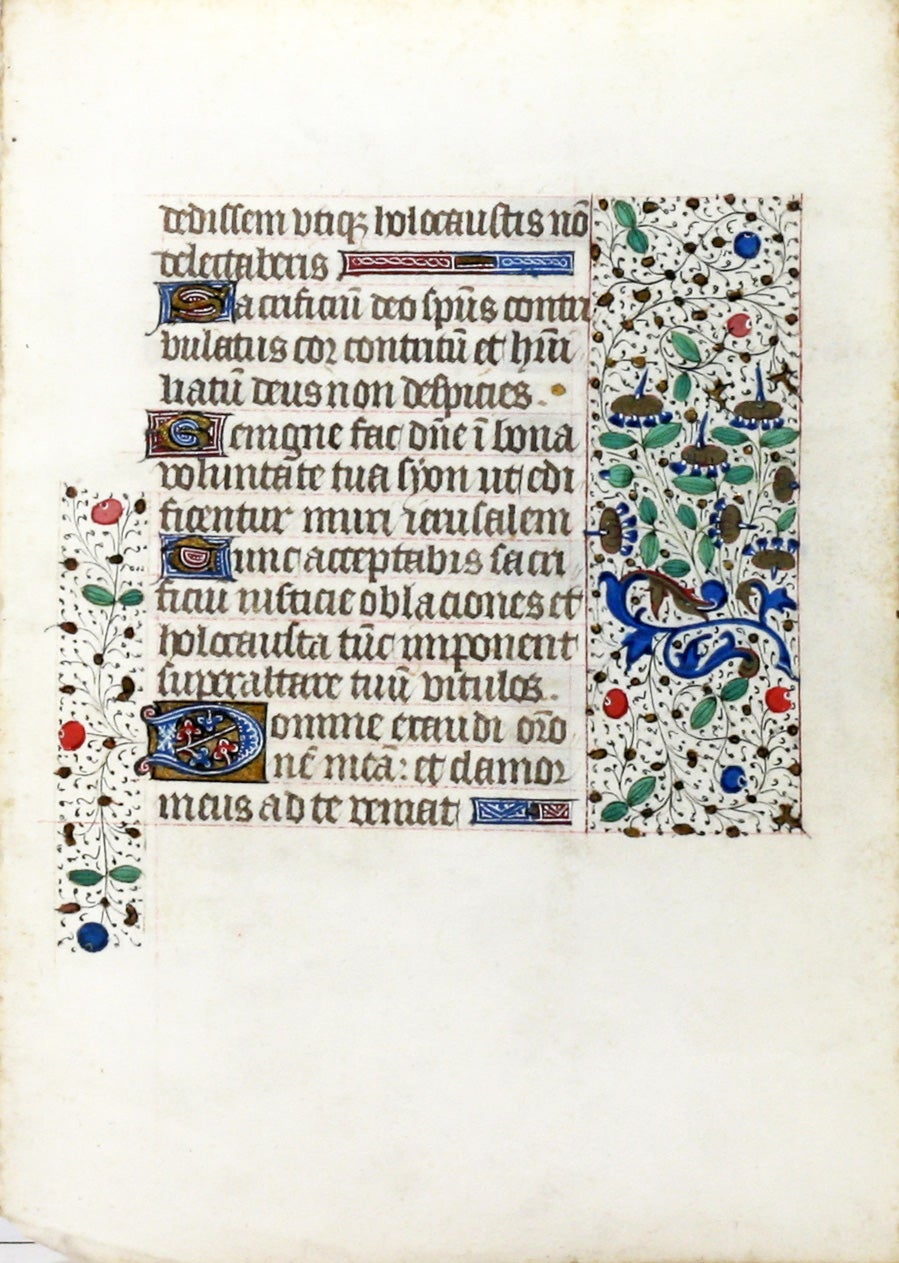 dedissem vtiqꝫ holocaustis nō
delectaberis
Sacrificiū deo spūs contri
bulatus cor contritū et hūi
liatū deus non despicies.
Benigne fac dn̄e ī bona
voluntate tua syon ut edi
ficentur muri ierusalem
Tunc acceptabis sacri
ficiu iusticie oblaciones et
holocausta tūc imponent
super altare tuū vitulos.
Domine exaudi oro
nē meā: et clamor
meus ad te veniat